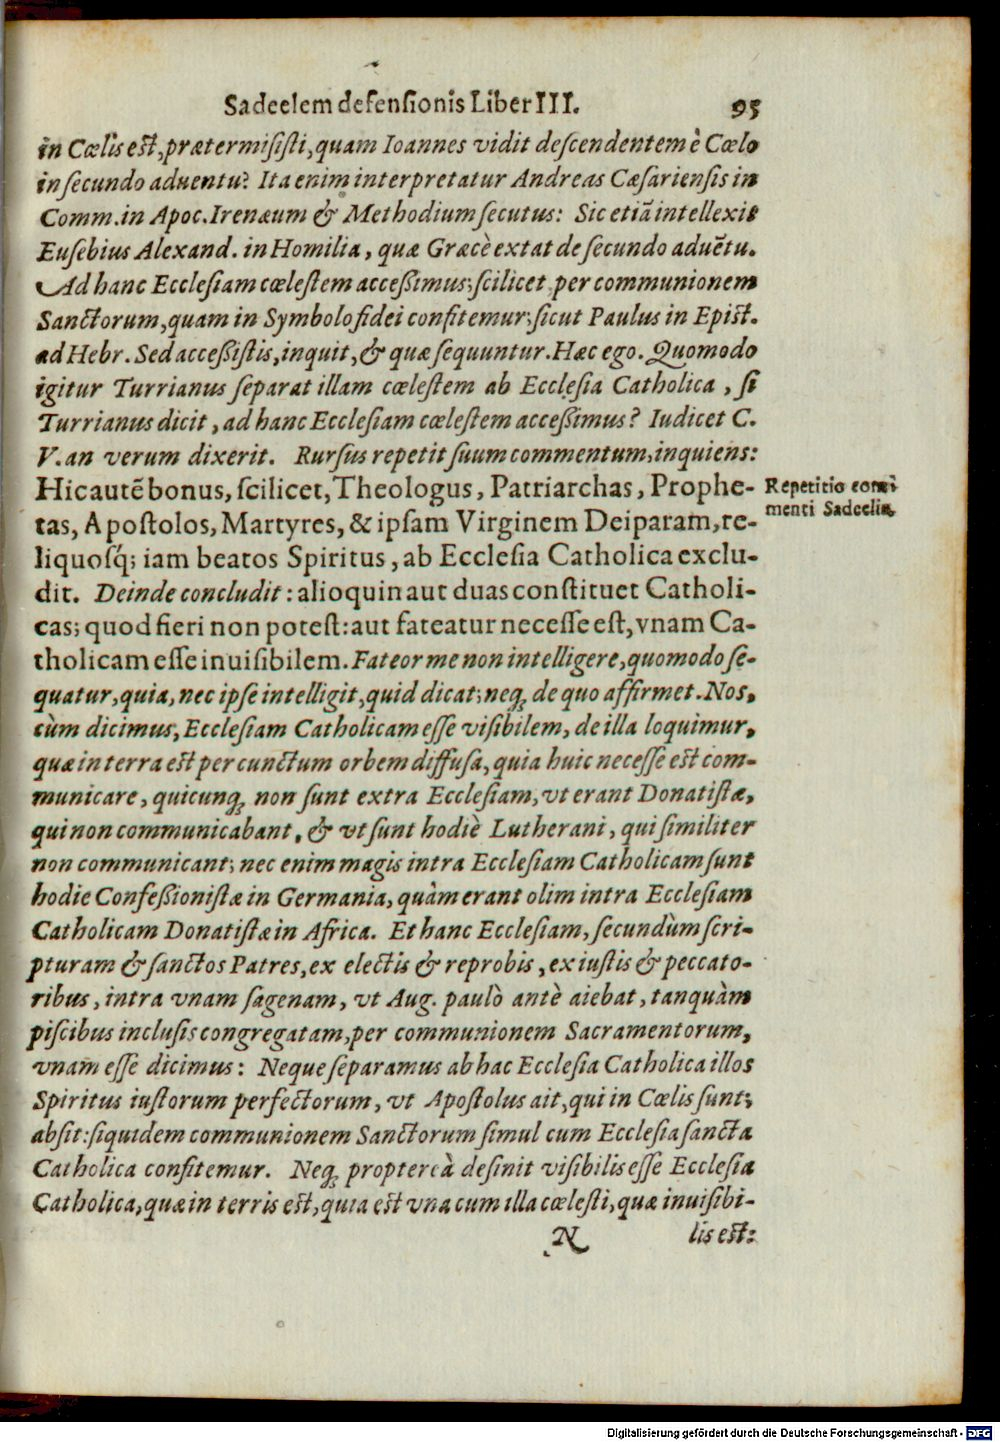 Sadeelem defensionis Liber III. 95
in Cœlis est, prætermisisti, quam Ioannes vidit descendentem è Cœlo
in secundo aduentu? Ita enim interpretatur Andreas Cæsariensis in
Comm. in Apoc. Irenæum & Methodium secutus: Sic etiā intellexit
Eusebius Alexand. in Homilia, quæ Græcè extat de secundo aduētu.
Ad hanc Ecclesiam cœlestem accessimus; scilicet per communionem
Sanctorum, quam in Symbolo fidei confitemur; sicut Paulus in Epist.
ad Hebr. Sed accessistis, inquit, & quæ sequuntur. Hæc ego. Quomodo
igitur Turrianus separat illam cœlestem ab Ecclesia Catholica, si
Turrianus dicit, ad hanc Ecclesiam cœlestem accessimus? Iudicet C.
V. an verum dixerit. Rursus repetit suum commentum, inquiens:
Hic autē bonus, scilicet, Theologus, Patriarchas, Prophe-
tas, Apostolos, Martyres, & ipsam Virginem Deiparam, re-
liquosq́; iam beatos Spiritus, ab Ecclesia Catholica exclu-
dit. Deinde concludit: alioquin aut duas constituet Catholi-
cas; quod fieri non potest: aut fateatur necesse est, vnam Ca-
tholicam esse inuisibilem. Fateor me non intelligere, quomodo se-
quatur, quia, nec ipse intelligit, quid dicat; neq; de quo affirmet. Nos,
cùm dicimus, Ecclesiam Catholicam esse visibilem, de illa loquimur,
quæ in terra est per cunctum orbem diffusa, quia huic necesse est com-
municare, quicunq; non sunt extra Ecclesiam, vt erant Donatistæ,
qui non communicabant, & vt sunt hodiè Lutherani, qui similiter
non communicant; nec enim magis intra Ecclesiam Catholicam sunt
hodie Confessionistæ in Germania, quàm erant olim intra Ecclesiam
Catholicam Donatistæ in Africa. Et hanc Ecclesiam, secundùm scri-
pturam & sanctos Patres, ex electis & reprobis, ex iustis & peccato-
ribus, intra vnam sagenam, vt Aug. paulò antè aiebat, tanquàm
piscibus inclusis congregatam, per communionem Sacramentorum,
vnam esse dicimus: Neque separamus ab hac Ecclesia Catholica illos
Spiritus iustorum perfectorum, vt Apostolus ait, qui in Cœlis sunt;
absit: siquidem communionem Sanctorum simul cum Ecclesia sancta
Catholica confitemur. Neq; proptereà desinit visibilis esse Ecclesia
Catholica, quæ in terris est, quia est vna cum illa cœlesti, quæ inuisibi-
N lis est:
Repetitio com̄
menti Sadeelis.
Digitalisierung gefördert durch die Deutsche Forschungsgemeinschaft - DFG